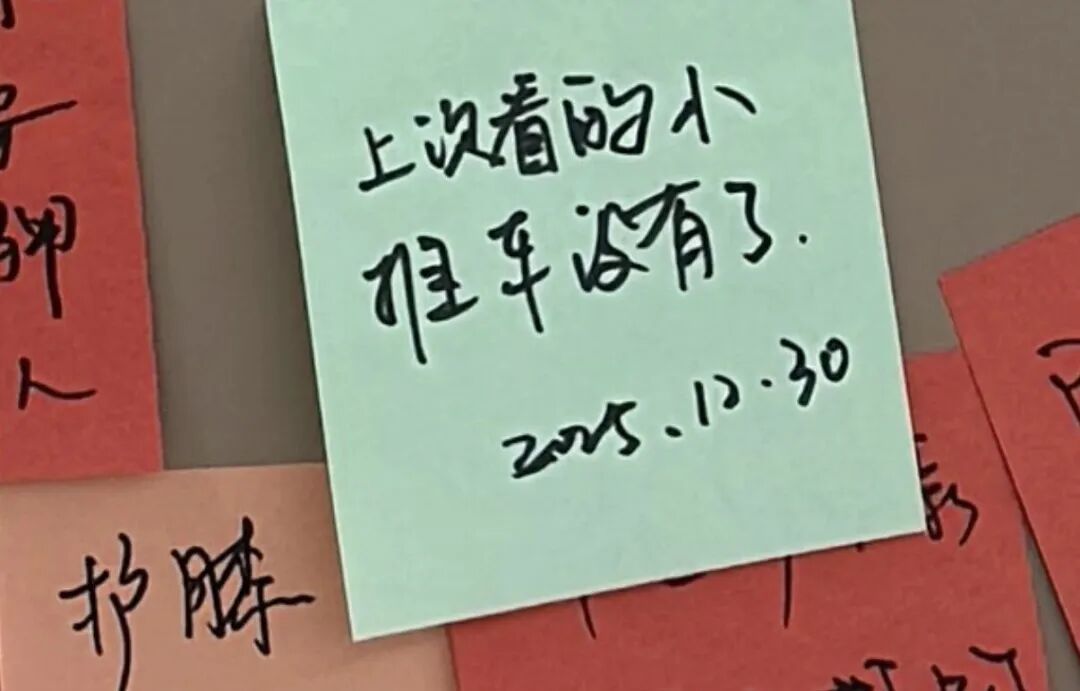 上次看的小
推车没有了.
2025.12.30
护膝
人